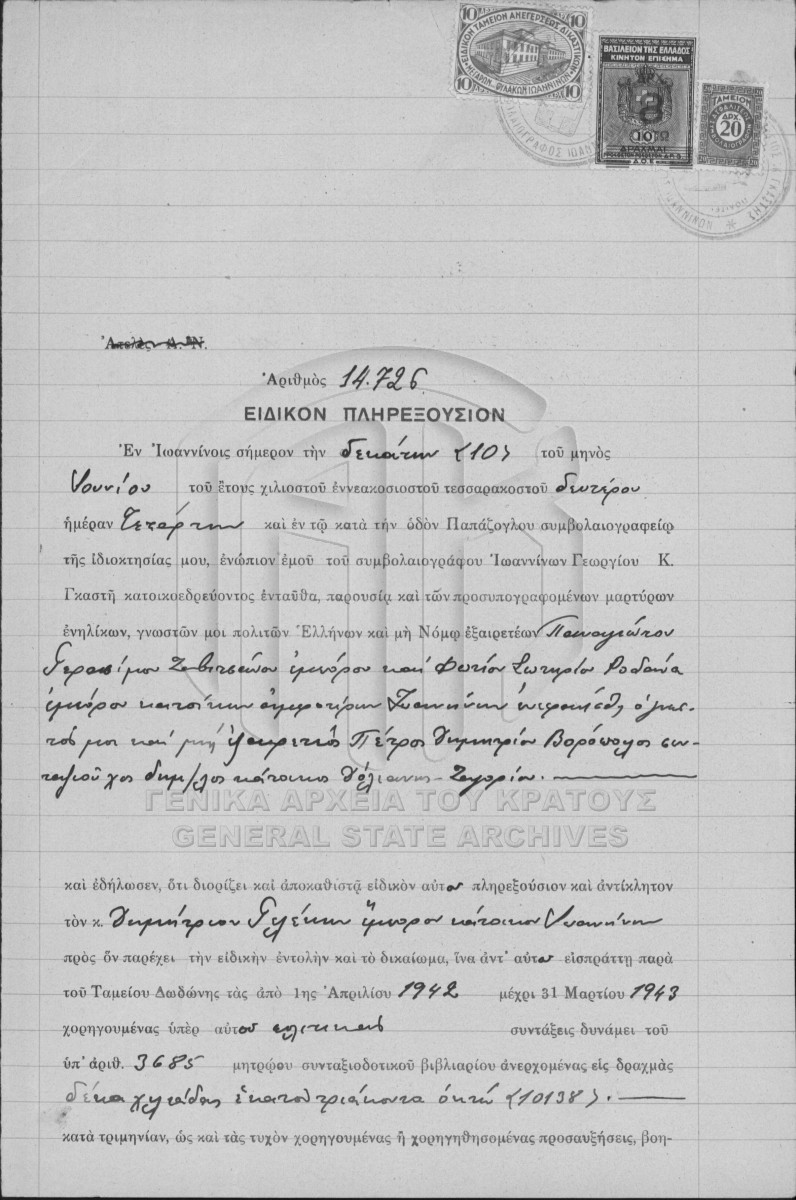 10 ΕΙΔΙΚΟΝ ΤΑΜΕΙΟΝ ΑΝΕΓΕΡΣΕΩΣ ΔΙΚΑΣΤΙΚΟΥ 10
10 ΜΕΓΑΡΟΥ ΦΥΛΑΚΩΝ ΙΩΑΝΝΙΝΩΝ 10
ΒΑΣΙΛΕΙΟΝ ΤΗΣ ΕΛΛΑΔΟΣ
ΚΙΝΗΤΟΝ ΕΠΙΣΗΜΑ
10
ΔΡΑΧΜΑΙ
ΤΑΜΕΙΟΝ
ΔΡΧ
20
Ἀτελὲς Α. Ν.
Ἀριθμὸς 14.726
ΕΙΔΙΚΟΝ ΠΛΗΡΕΞΟΥΣΙΟΝ
Ἐν Ἰωαννίνοις σήμερον τὴν δεκάτην (10) τοῦ μηνὸς
Ἰουνίου τοῦ ἔτους χιλιοστοῦ ἐννεακοσιοστοῦ τεσσαρακοστοῦ δευτέρου
ἡμέραν Τετάρτην καὶ ἐν τῷ κατὰ τὴν ὁδὸν Παπάζογλου συμβολαιογραφείῳ
τῆς ἰδιοκτησίας μου, ἐνώπιον ἐμοῦ τοῦ συμβολαιογράφου Ἰωαννίνων Γεωργίου Κ.
Γκαστῆ κατοικοεδρεύοντος ἐνταῦθα, παρουσίᾳ καὶ τῶν προσυπογραφομένων μαρτύρων
ἐνηλίκων, γνωστῶν μοι πολιτῶν Ἑλλήνων καὶ μὴ Νόμῳ ἐξαιρετέων Παναγιώτου
Γερασίμου ἐμπόρου καὶ Φωτίου Σωτηρίου
ἐμπόρου κατοίκων ἀμφοτέρων Ἰωαννίνων ἐνεφανίσθη ὁ γνωσ-
τός μοι καὶ μὴ ἐξαιρετέος Πέτρος Δημητρίου Βορόπολος συν-
ταξιοῦχος δημ/λος κάτοικος Ζαγορίου.
ΓΕΝΙΚΑ ΑΡΧΕΙΑ ΤΟΥ ΚΡΑΤΟΥΣ
GENERAL STATE ARCHIVES
καὶ ἐδήλωσεν, ὅτι διορίζει καὶ ἀποκαθιστᾷ εἰδικὸν αὐτοῦ πληρεξούσιον καὶ ἀντίκλητον
τὸν κ. Δημήτριον Γκλέκην ἔμπορον κάτοικον Ἰωαννίνων
πρὸς ὃν παρέχει τὴν εἰδικὴν ἐντολὴν καὶ τὸ δικαίωμα, ἵνα ἀντ᾽ αὐτοῦ εἰσπράττῃ παρὰ
τοῦ Ταμείου Δωδώνης τὰς ἀπὸ 1ης Ἀπριλίου 1942 μέχρι 31 Μαρτίου 1943
χορηγουμένας ὑπὲρ αὐτοῦ πολιτικὰς συντάξεις δυνάμει τοῦ
ὑπ᾽ ἀριθ. 3685 μητρῴου συνταξιοδοτικοῦ βιβλιαρίου ἀνερχομένας εἰς δραχμὰς
δέκα χιλιάδας ἑκατὸν τριάκοντα ὀκτώ (10138).
κατὰ τριμηνίαν, ὡς καὶ τὰς τυχὸν χορηγουμένας ἢ χορηγηθησομένας προσαυξήσεις, βοη-